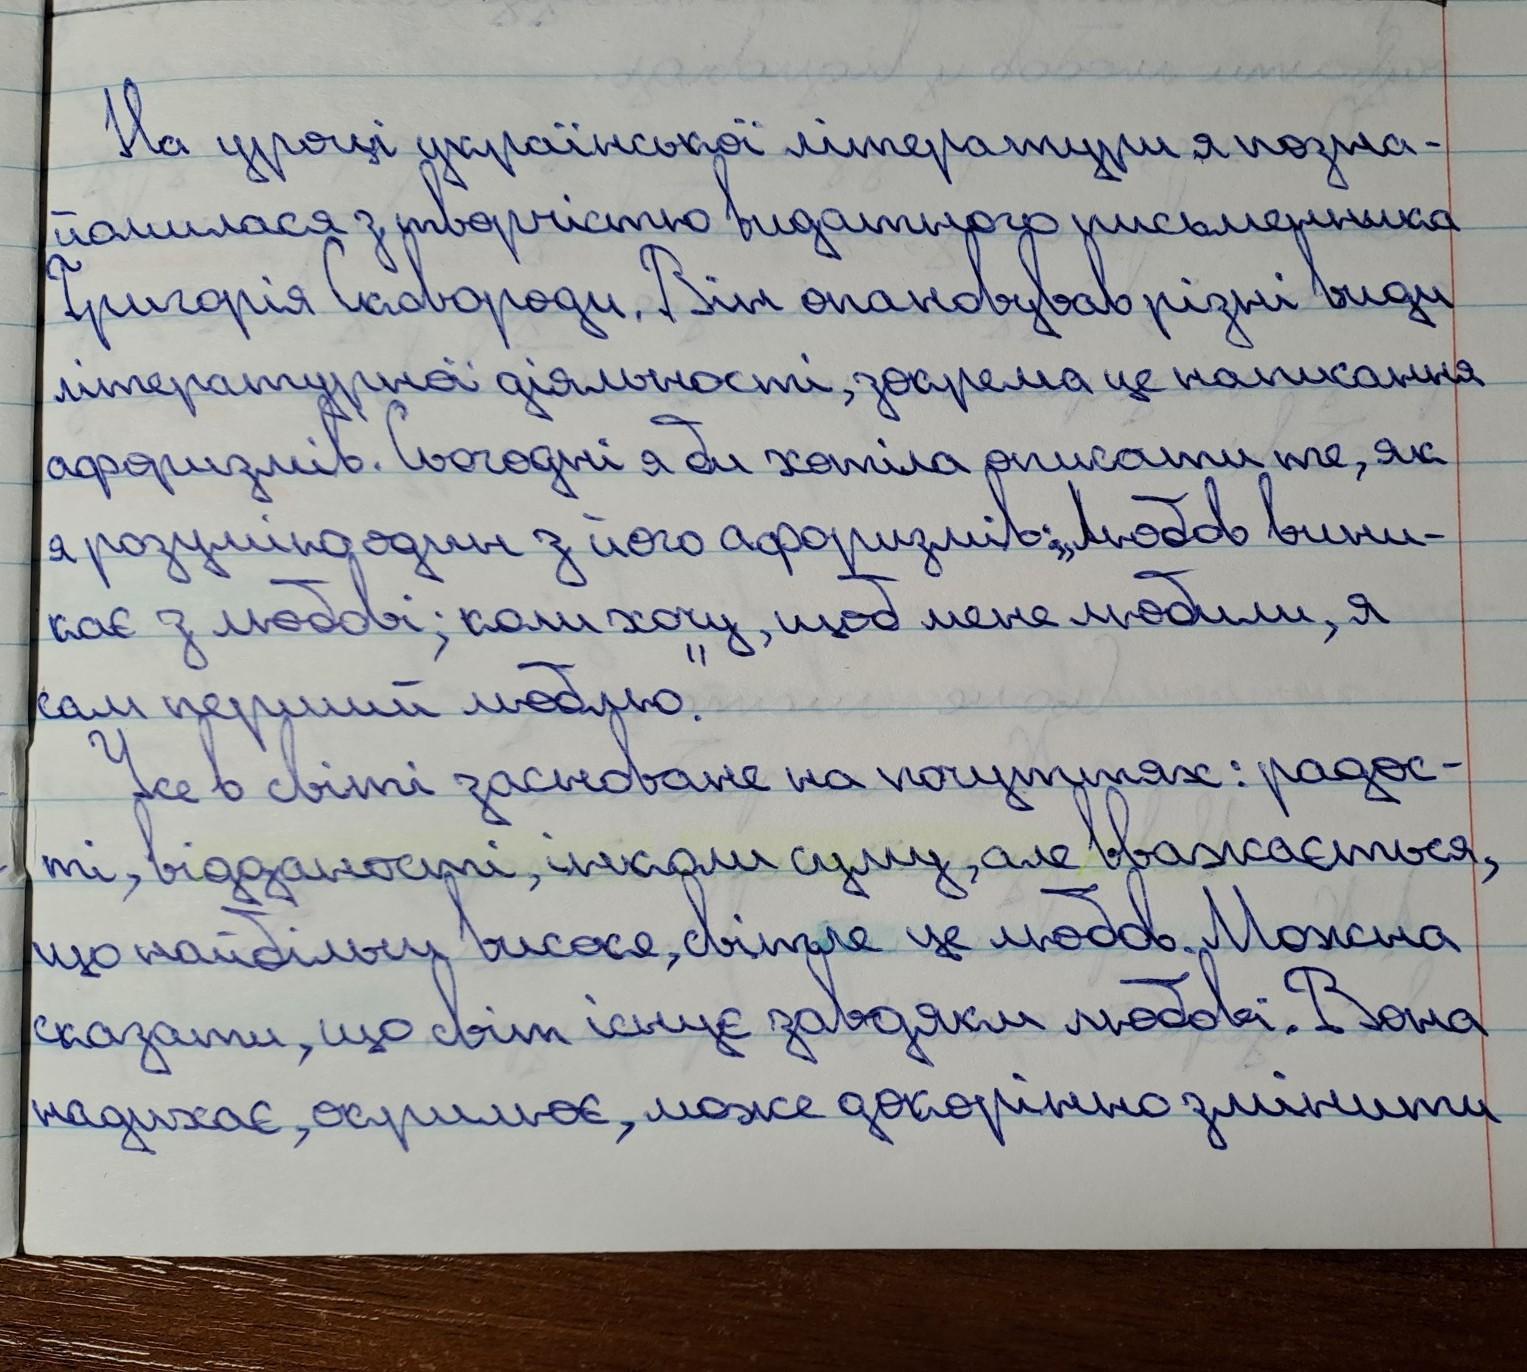 На уроці української літератури я позна-
йомилася з творчістю видатного письменника
Григорія Сковороди. Він опановував різні види
літературної діяльності, зокрема це написання
афоризмів. Сьогодні я би хотіла описати те, як
я розумію один з його афоризмів: „Любов вини-
кає з любові; коли хочу, щоб мене любили, я
сам перший люблю".
Усе в світі засноване на почуттях: радос-
ті, відданості, інколи суму, але вважається,
що найбільш високе, світле це любов. Можна
сказати, що світ існує завдяки любові. Вона
надихає, окрилює, може докорінно змінити